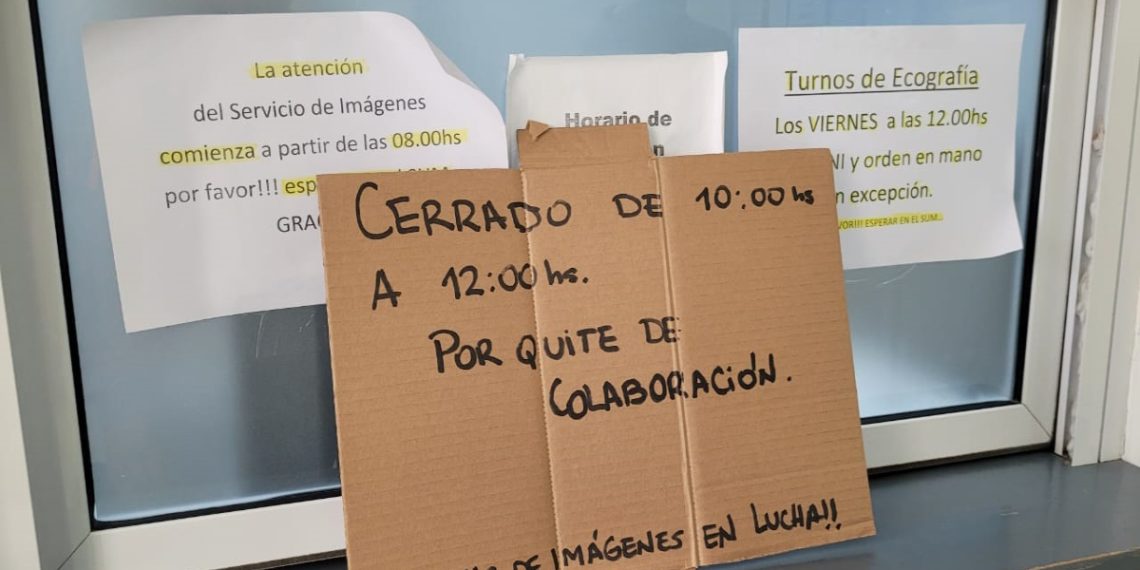 La atención
del Servicio de Imágenes
comienza a partir de las 08.00hs
por favor!!! esp
GRA
Horario de
Turnos de Ecografía
Los VIERNES a las 12.00hs
NI y orden en mano
n excepción.
VOR!!! ESPERAR EN EL SUM...
CERRADO DE 10:00 hs
A 12:00 hs.
POR QUITE DE
COLABORACIÓN.
DE IMÁGENES EN LUCHA!!